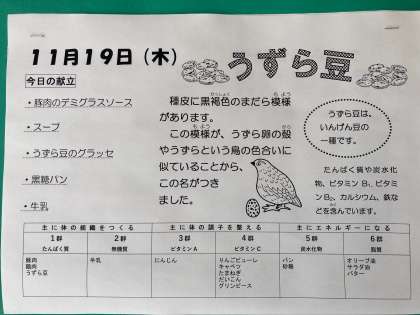 11月19日（木）
うずら豆
今日の献立
・豚肉のデミグラスソース
・スープ
・うずら豆のグラッセ
・黒糖パン
・牛乳
種皮に黒褐色のまだら模様
があります。
この模様が、うずら卵の殻
やうずらという鳥の色合いに
似ていることから、
この名がつき
ました。
うずら豆は、
いんげん豆の
一種です。
たんぱく質や炭水化
物、ビタミンB₁、ビタミ
ンB₂、カルシウム、鉄な
どを含んでいます。
主に体の組織をつくる 主に体の調子を整える 主にエネルギーになる
1群 2群 3群 4群 5群 6群
たんぱく質 無機質 ビタミンA ビタミンC 炭水化物 脂質
豚肉 牛乳 にんじん りんごピューレ パン オリーブ油
鶏肉 キャベツ 砂糖 サラダ油
うずら豆 たまねぎ バター
だいこん
グリンピース